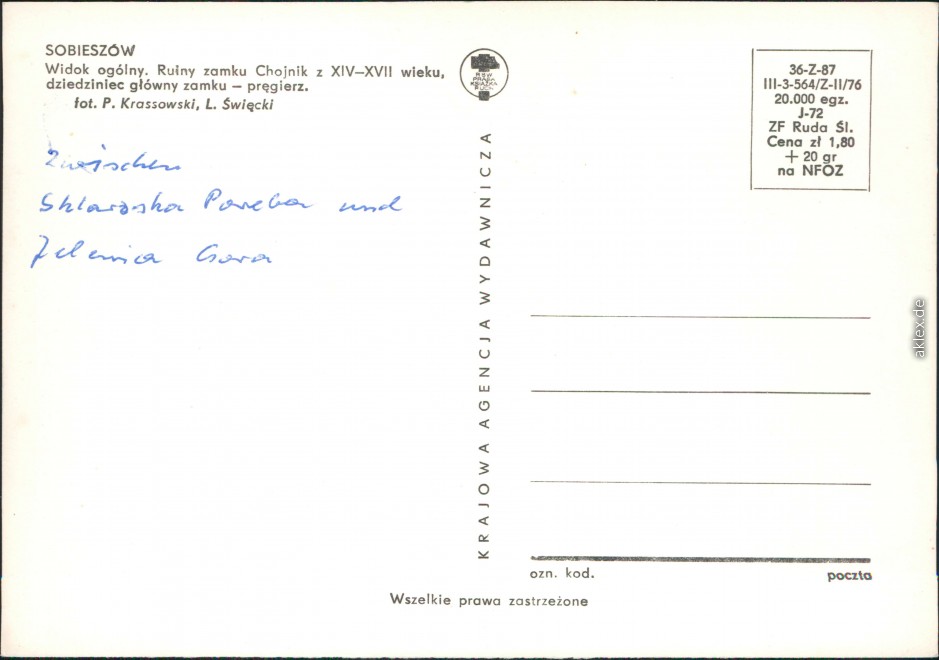 SOBIESZÓW
Widok ogólny. Ruiny zamku Chojnik z XIV–XVII wieku,
dziedziniec główny zamku – pręgierz.
fot. P. Krassowski, L. Święcki
Zwischen
Sklarska Pareba und
Jelenia Gora
RSW
PRASA
KSIĄŻKA
RUCH
KRAJOWA AGENCJA WYDAWNICZA
36-Z-87
III-3-564/Z-II/76
20.000 egz.
J-72
ZF Ruda Śl.
Cena zł 1,80
+ 20 gr
na NFOZ
ozn. kod.
poczta
Wszelkie prawa zastrzeżone
aklex.de